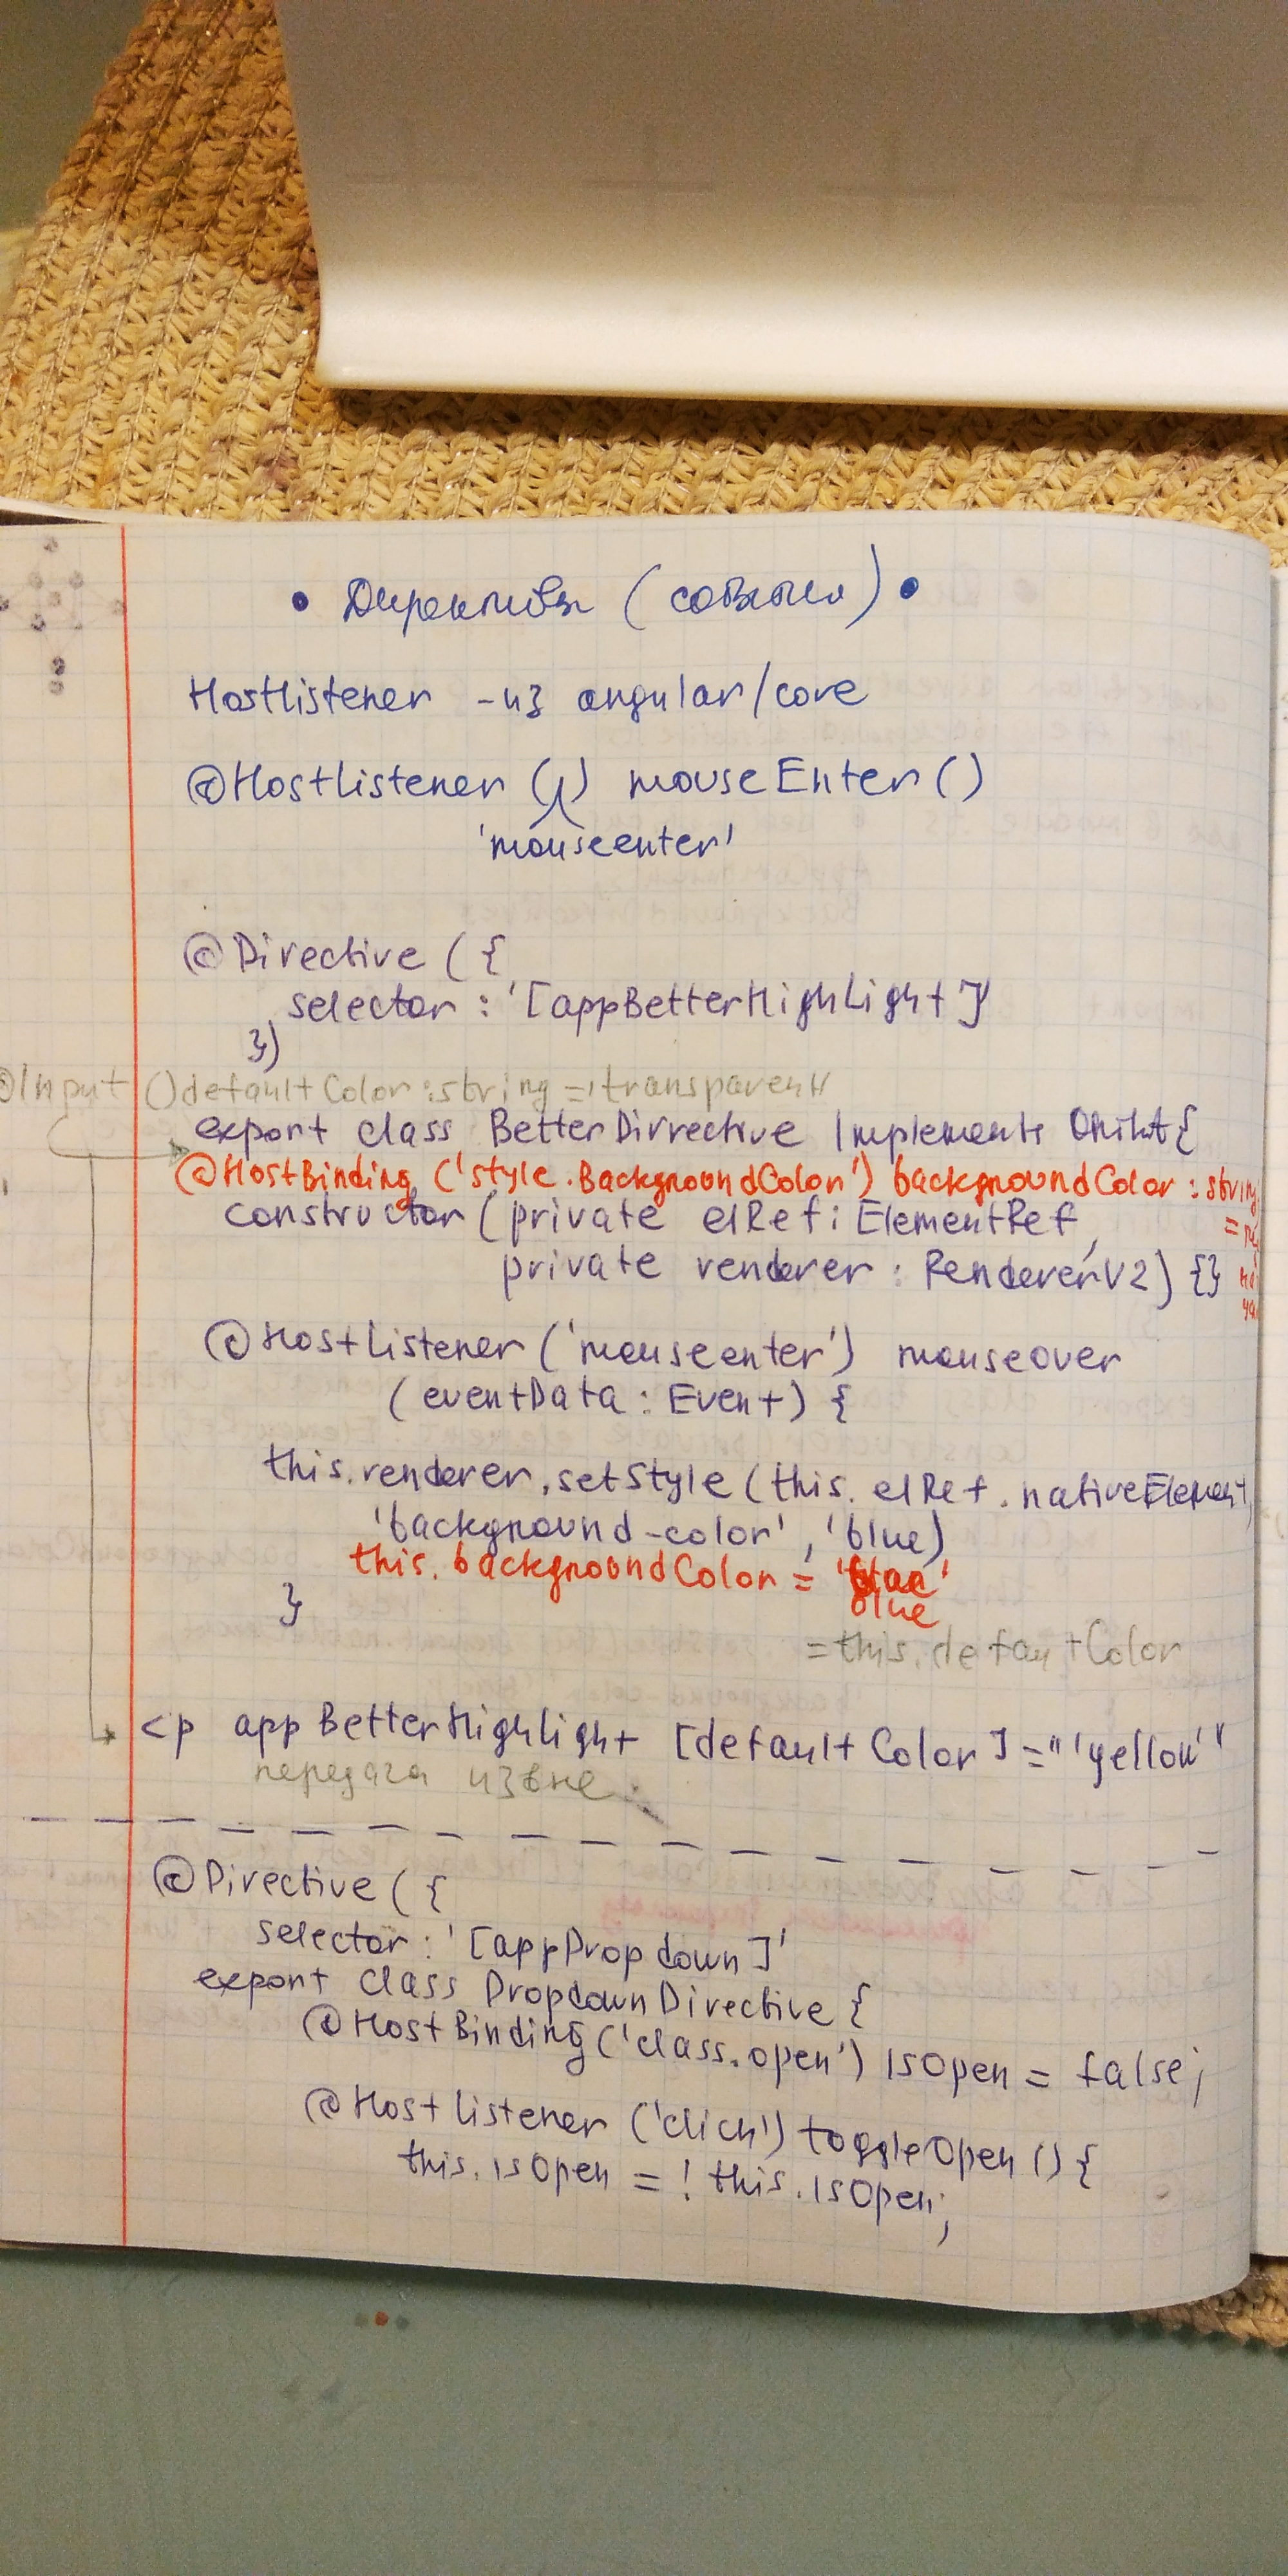 • Директивы (события) •
HostListener - из angular/core
@HostListener () mouseEnter()
'mouseenter'
@Directive ({
selector : '[appBetterHighLight]'
})
@Input () defaultColor : string = 'transparent'
export class BetterDirrective Implements OnInit {
@HostBinding ('style.BackgroundColor') backgroundColor : string
constructor (private elRef : ElementRef,
private renderer : RendererV2) {}
@HostListener ('mouseenter') mouseover
(eventData : Event) {
this.renderer.setStyle (this.elRef.nativeElement,
'background-color', 'blue)
this.backgroundColor = 'blue'
}
= this.defautColor
<p appBetterHighlight [defaultColor] = "'yellow'"
передача извне
@Directive ({
selector : '[appDropdown]'
export class DropdownDirective {
@HostBinding ('class.open') isOpen = false;
@HostListener ('click') toggleOpen () {
this.isOpen = ! this.isOpen;